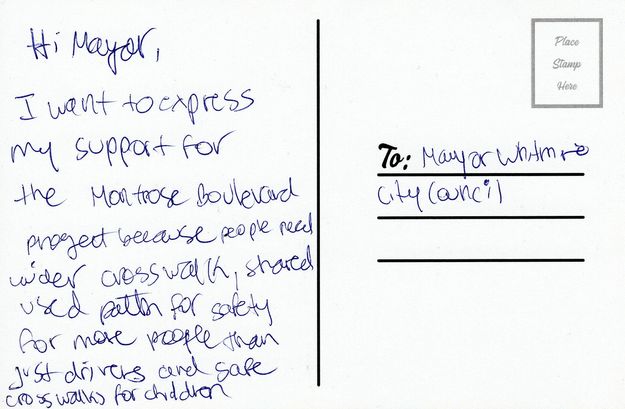 Hi Mayor,
I want to express
my support for
the Montrose Boulevard
project because people need
wider crosswalk, shared
used path for safety
for more people than
just drivers and safe
crosswalks for children
Place
Stamp
Here
To: Mayor Whitmire
City Council